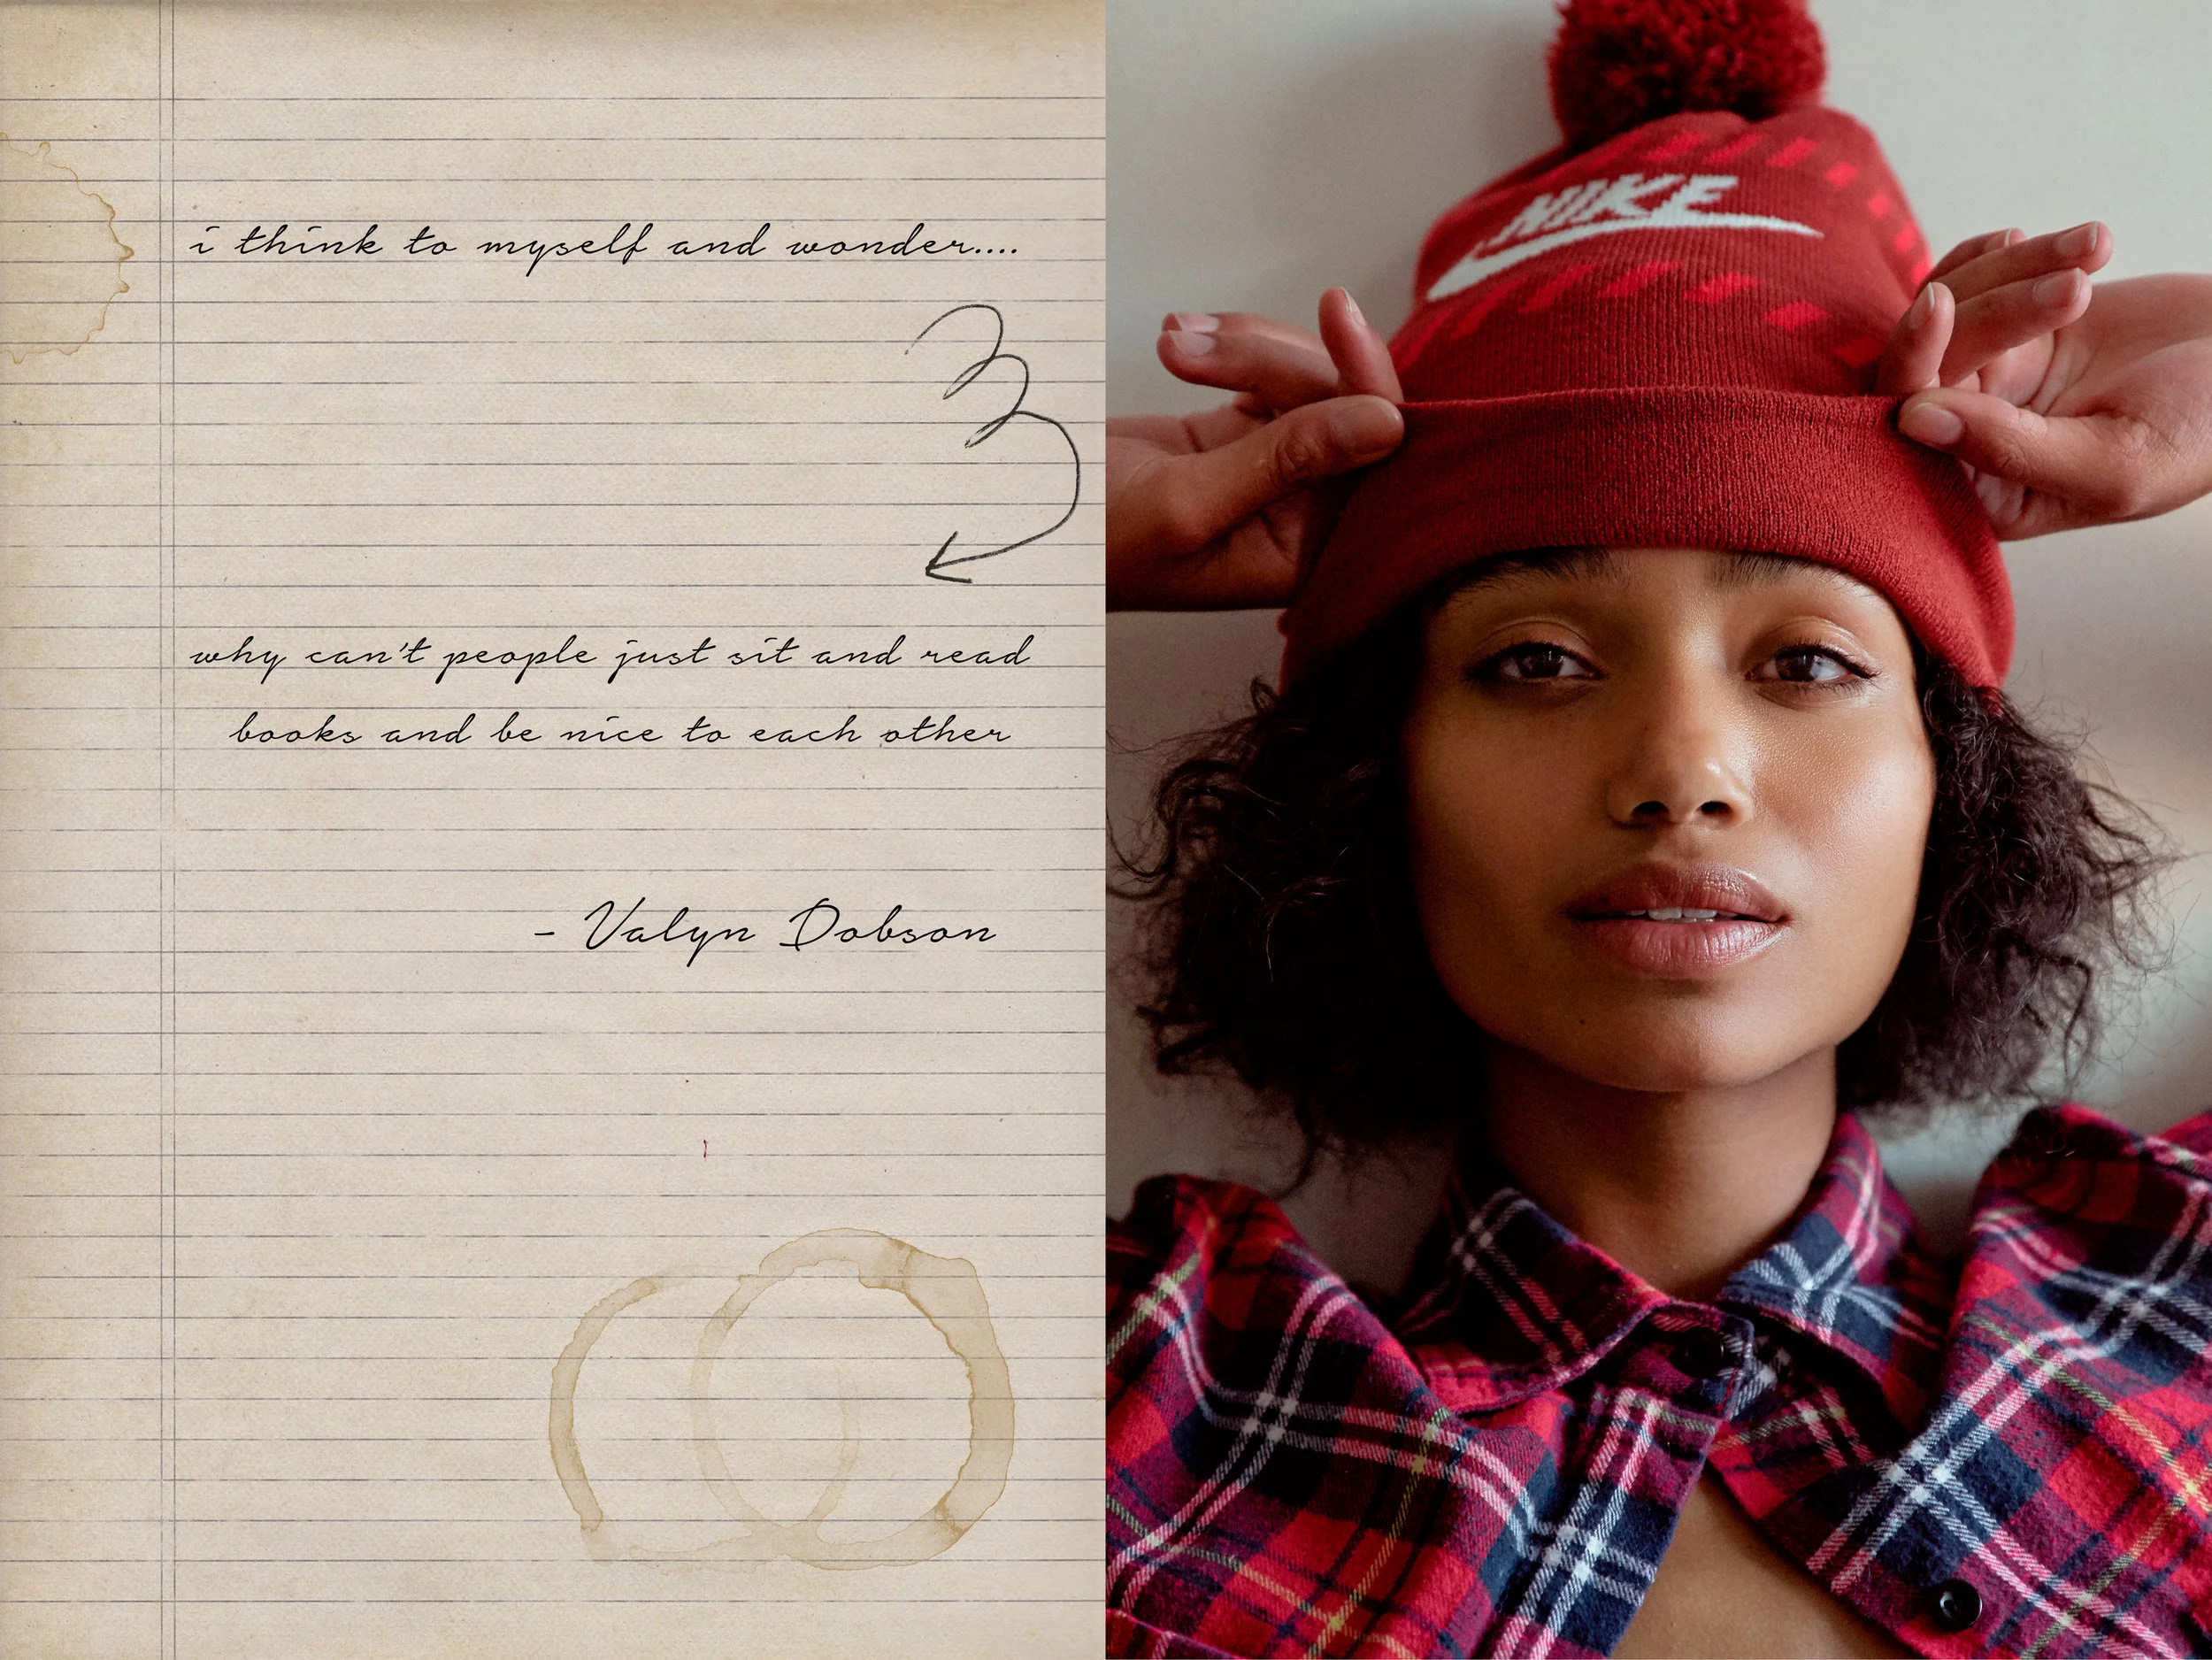 i think to myself and wonder....
why can't people just sit and read
books and be nice to each other
- Valyn Dobson
NIKE